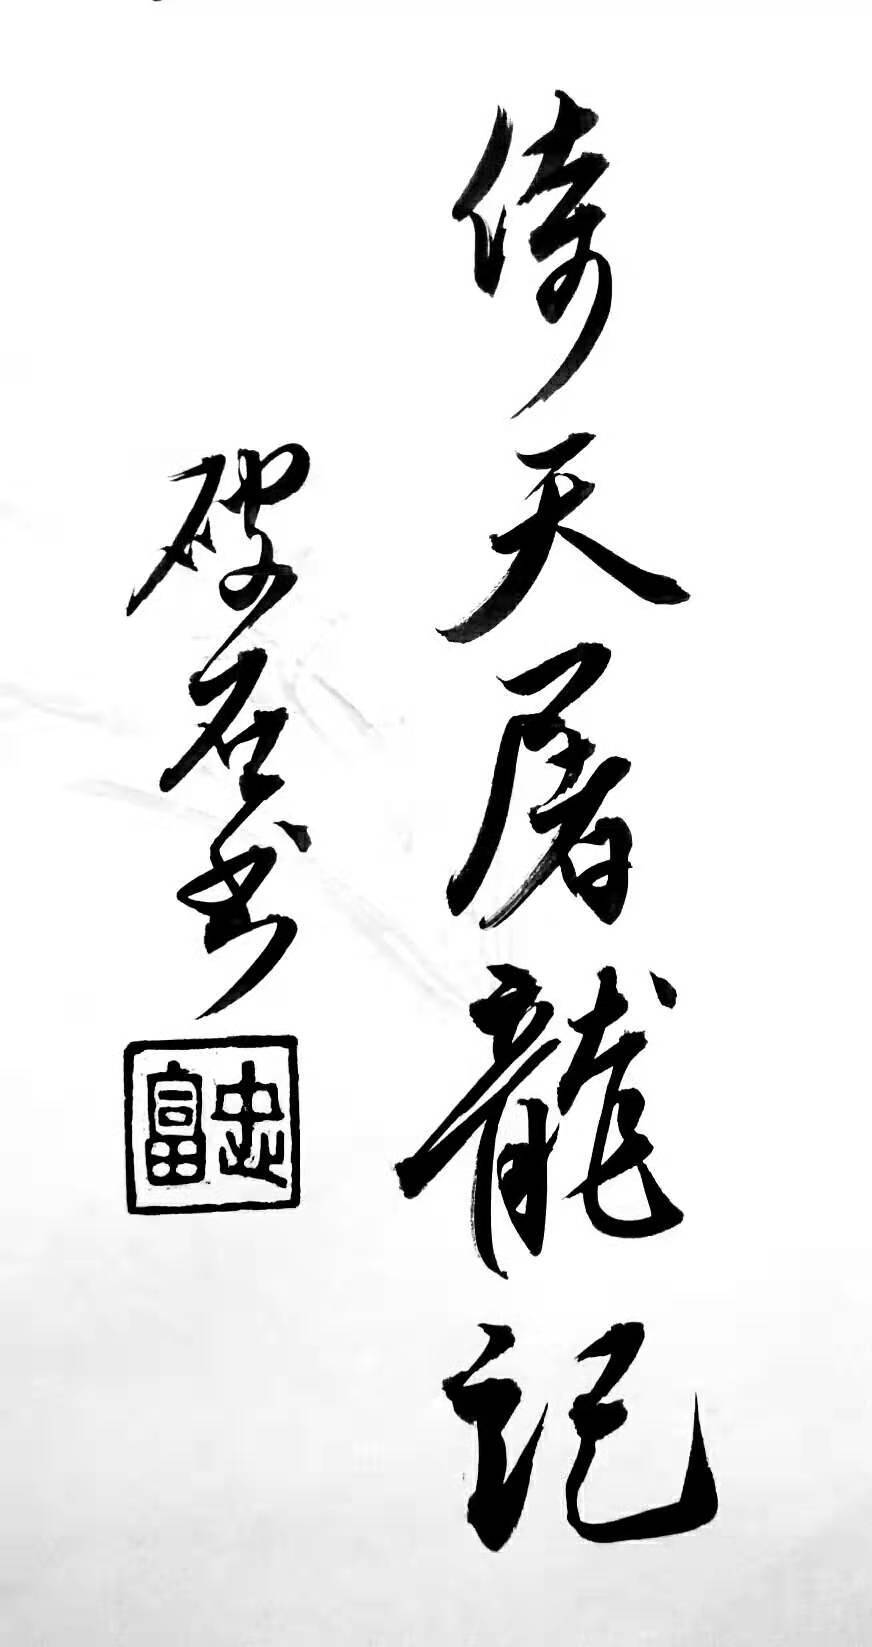 倚天屠龍記
破石书
忠富